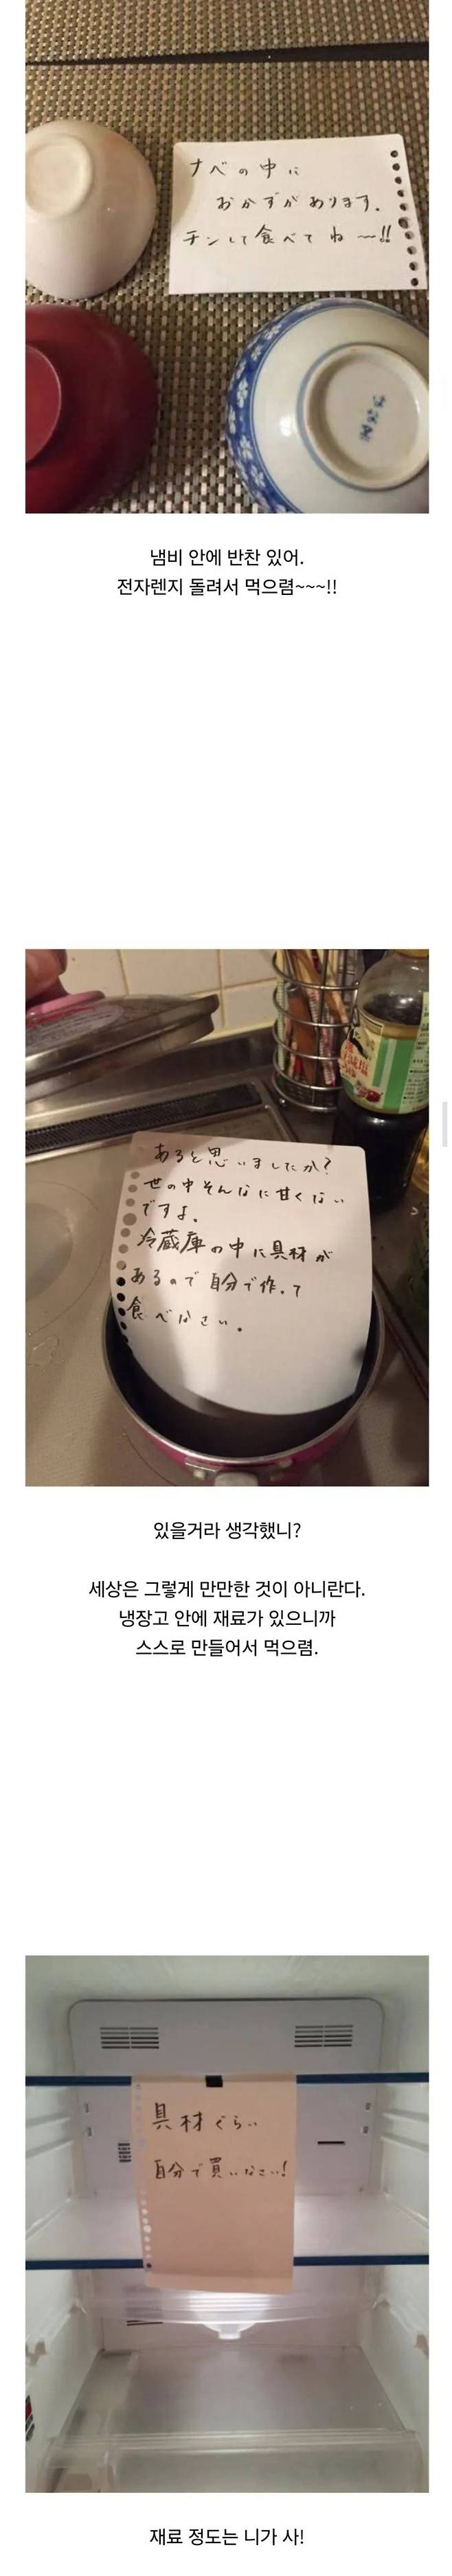 ナベの中に
おかずがあります。
チンして食べてね〜!!
냄비 안에 반찬 있어.
전자렌지 돌려서 먹으렴~~~!!
あると思いましたか?
世の中そんなに甘くない
ですよ。
冷蔵庫の中に具材が
あるので自分で作って
食べなさい。
있을거라 생각했니?
세상은 그렇게 만만한 것이 아니란다.
냉장고 안에 재료가 있으니까
스스로 만들어서 먹으렴.
具材ぐらい
自分で買いなさい!
재료 정도는 니가 사!